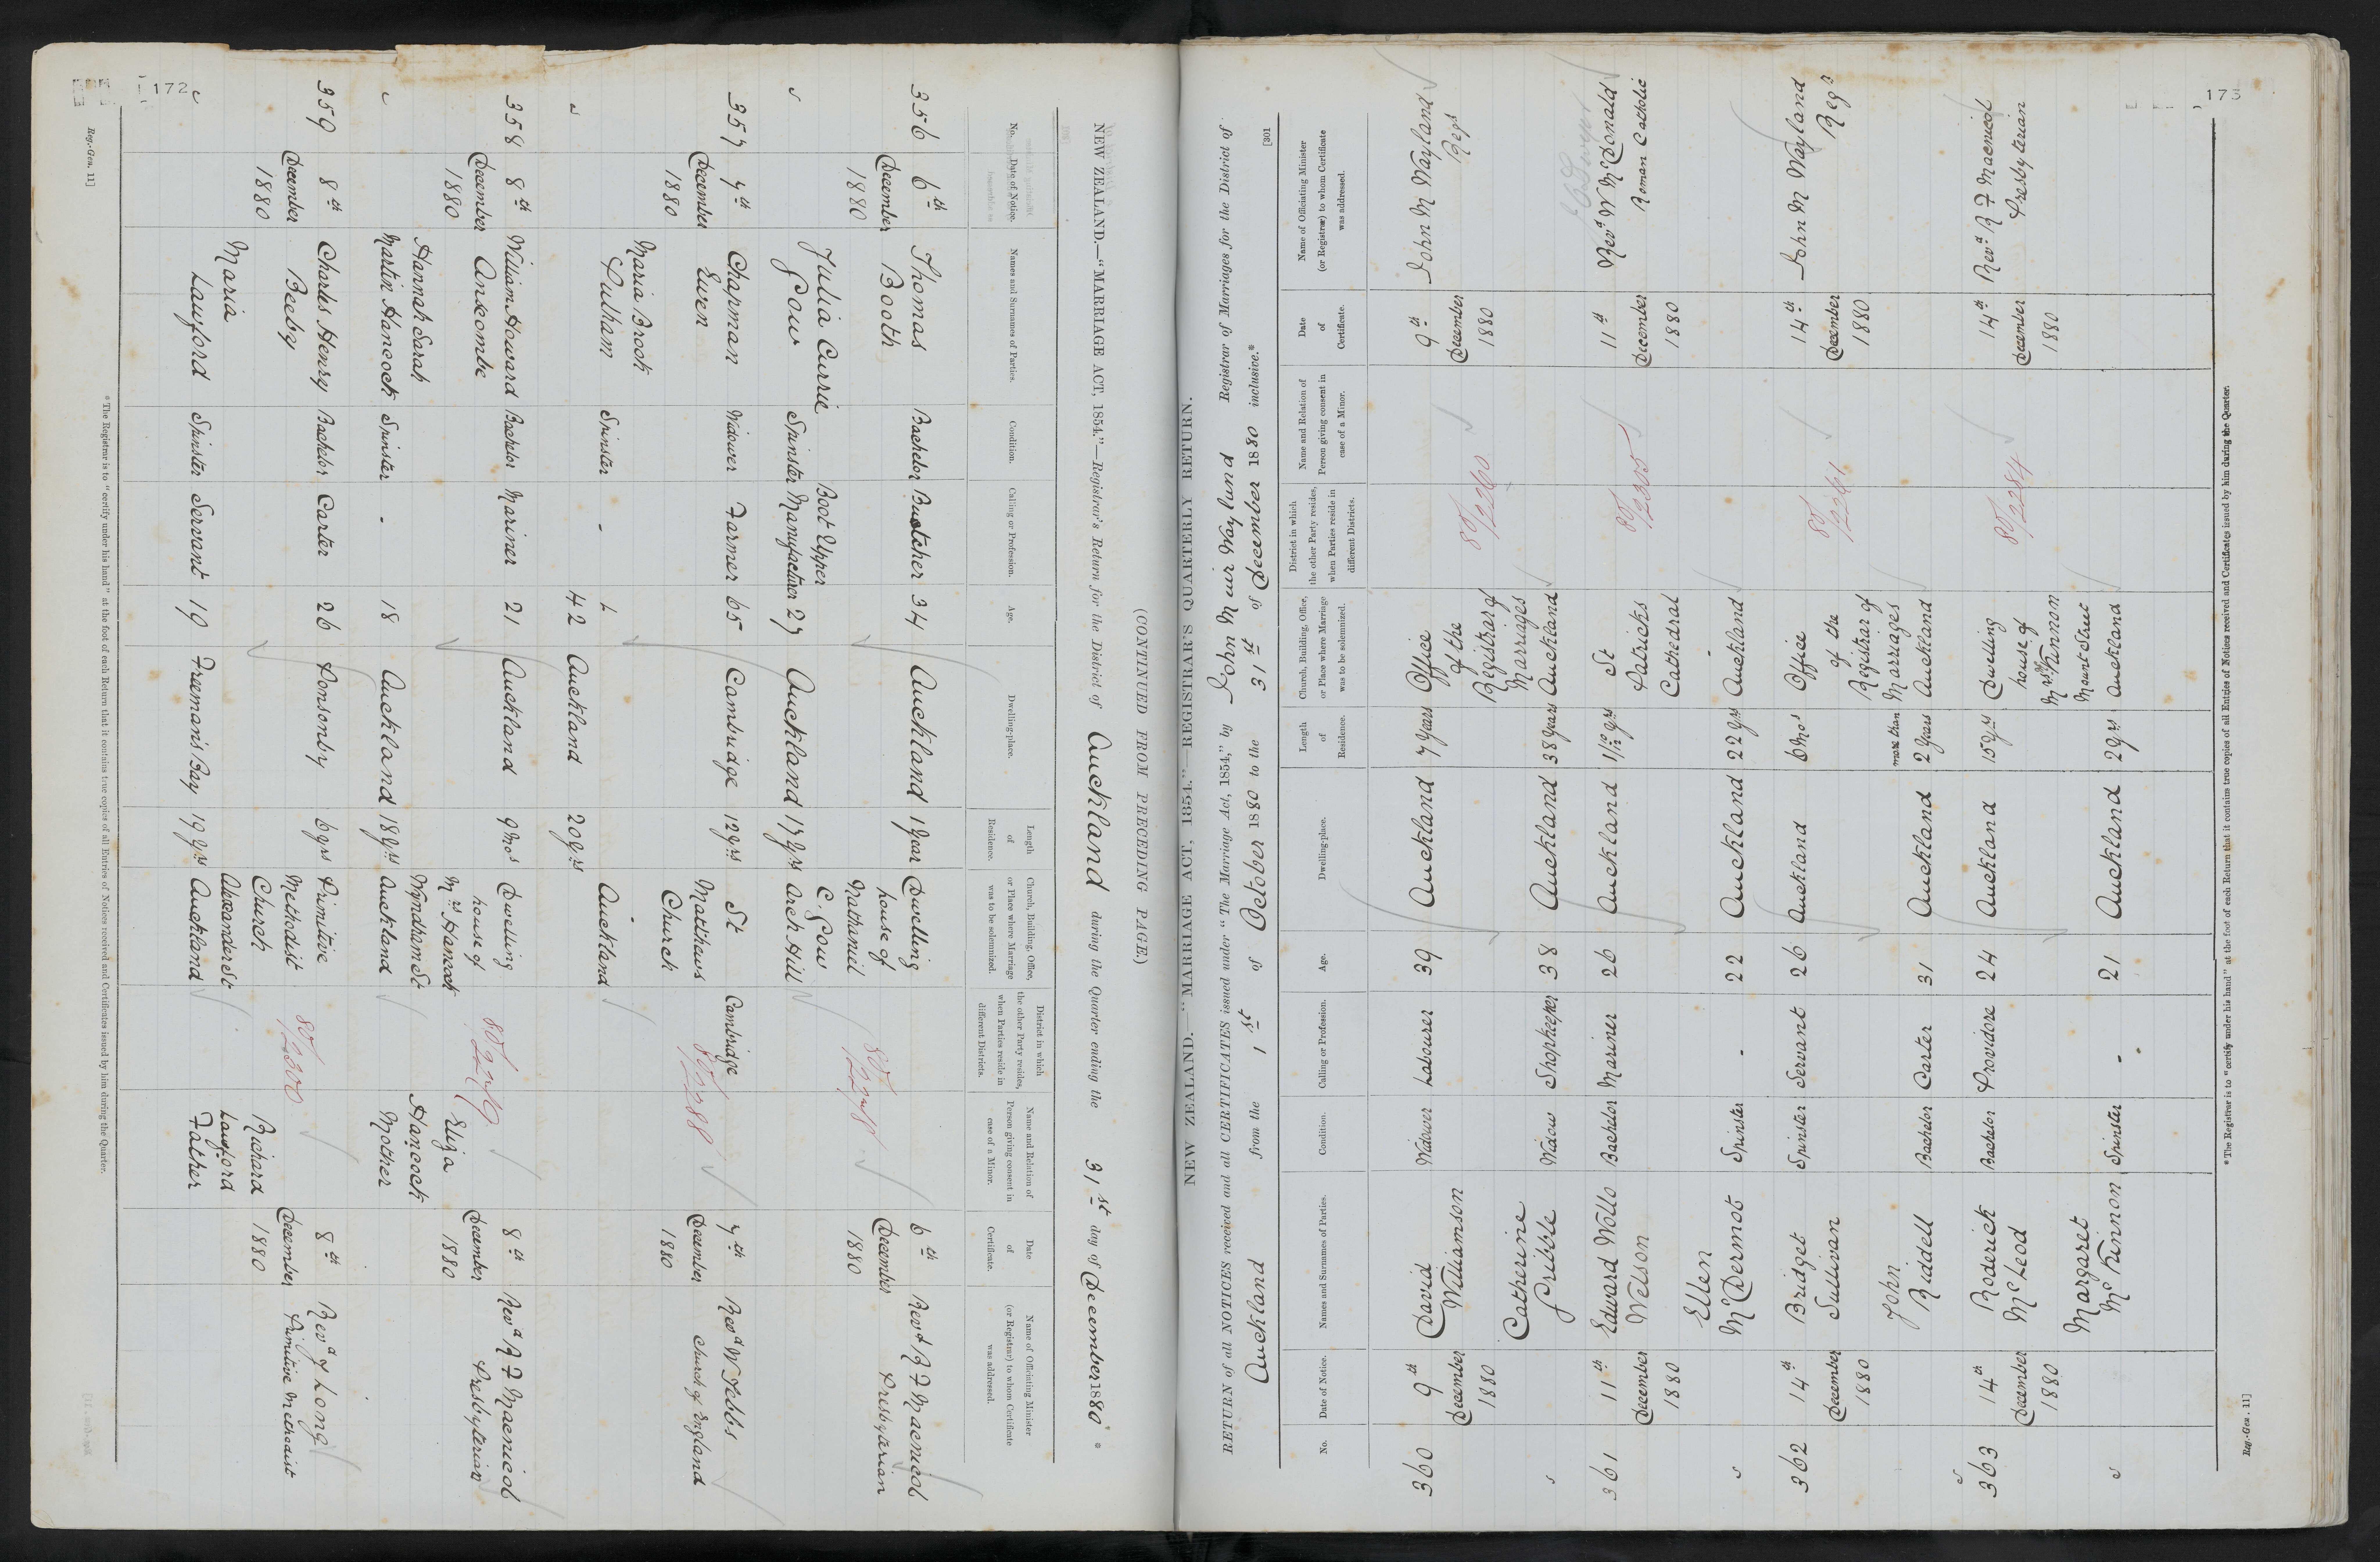 172
NEW ZEALAND.—"MARRIAGE ACT, 1854."—Registrar's Return for the District of Auckland during the Quarter ending the 31st day of December 1880 *
(CONTINUED FROM PRECEDING PAGE.)
No.
Date of Notice.
Names and Surnames of Parties.
Condition.
Calling or Profession.
Age.
Dwelling-place.
Length
of
Residence.
Church, Building, Office,
or Place where Marriage
was to be solemnized.
District in which
the other Party resides,
when Parties reside in
different Districts.
Name and Relation of
Person giving consent in
case of a Minor.
Date
of
Certificate.
Name of Officiating Minister
(or Registrar) to whom Certificate
was addressed.
356 6th Thomas Bachelor Butcher 34 Auckland 1 Year Dwelling 6th Revd R F Macnicol
December Booth house of December Presbyterian
1880 Nathaniel 1880
Julia Currie Boot Upper C. Gow
" Gow Spinster Manufacturer 27 Auckland 17 yrs Arch Hill
80/2278
357 7th Chapman Widower Farmer 65 Cambridge 12 yrs St Cambridge 7th Revd W Tebbs
December Ewen Matthews December Church of England
1880 Church 1880
80/2288
Maria Brook
Pulham Spinster - Auckland
" 42 Auckland 20 yrs
358 8th William Howard Bachelor Mariner 21 Auckland 9 mos Dwelling 8th Revd R F Macnicol
December Anscombe house of December Presbyterian
1880 Mrs Hancock Eliza 1880
Hannah Sarah Wyndham St Hancock
" Martin Hancock Spinster - 18 Auckland 18 yrs Auckland Mother
80/2279
359 8th Charles Henry Bachelor Carter 26 Ponsonby 6 yrs Primitive 8th Revd J Long
December Beeby Methodist December Primitive Methodist
1880 Church Richard 1880
Maria Alexander St Lawford
" Lawford Spinster Servant 19 Freeman's Bay 19 yrs Auckland Father
80/2300
* The Registrar is to "certify under his hand" at the foot of each Return that it contains true copies of all Entries of Notices received and Certificates issued by him during the Quarter.
Reg.-Gen. 11]
173
[301
NEW ZEALAND.—"MARRIAGE ACT, 1854."—REGISTRAR'S QUARTERLY RETURN.
RETURN of all NOTICES received and all CERTIFICATES issued under "The Marriage Act, 1854," by John Muir Wayland Registrar of Marriages for the District of
Auckland from the 1st of October 1880 to the 31st of December 1880 inclusive.*
No.
Date of Notice.
Names and Surnames of Parties.
Condition.
Calling or Profession.
Age.
Dwelling-place.
Length
of
Residence.
Church, Building, Office,
or Place where Marriage
was to be solemnized.
District in which
the other Party resides,
when Parties reside in
different Districts.
Name and Relation of
Person giving consent in
case of a Minor.
Date
of
Certificate.
Name of Officiating Minister
(or Registrar) to whom Certificate
was addressed.
360 9th David Widower Labourer 39 Auckland 7 years Office 9th John M Wayland
December Williamson of the December Regr
1880 Registrar of 1880
Catherine Marriages
" Pribble Widow Shopkeeper 38 Auckland 38 years Auckland
80/2260
361 11th Edward Wollo Bachelor Mariner 26 Auckland 1 10/12 yrs St 11th Revd W McDonald
December Welson Patricks December Roman Catholic
1880 Cathedral 1880
Ellen -
" McDermot Spinster - 22 Auckland 22 yrs Auckland
80/2305
362 14th Bridget Spinster Servant 26 Auckland 6 mos Office 14th John M Wayland
December Sullivan of the December Regr
1880 Registrar of 1880
John more than Marriages
" Riddell Bachelor Carter 31 Auckland 2 years Auckland
80/2261
363 14th Roderick Bachelor Providore 24 Auckland 15 yrs Dwelling 14th Revd R F Macnicol
December McLeod house of December Presbyterian
1880 Mrs McKinnon 1880
Margaret Mount Street
" McKinnon Spinster - 21 Auckland 2 yrs Auckland
80/2284
* The Registrar is to "certify under his hand" at the foot of each Return that it contains true copies of all Entries of Notices received and Certificates issued by him during the Quarter.
Reg.-Gen. 11]